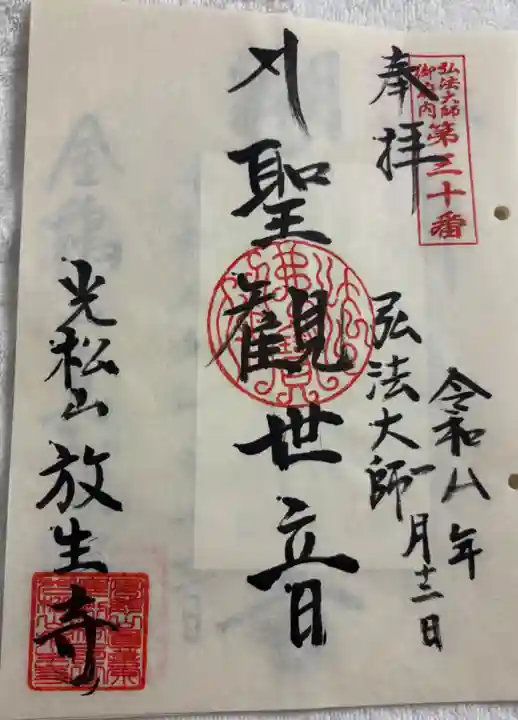 弘法大師
御府内
第三十番
奉拝
令和八年
一月十二日
弘法大師
聖観世音
光松山放生寺